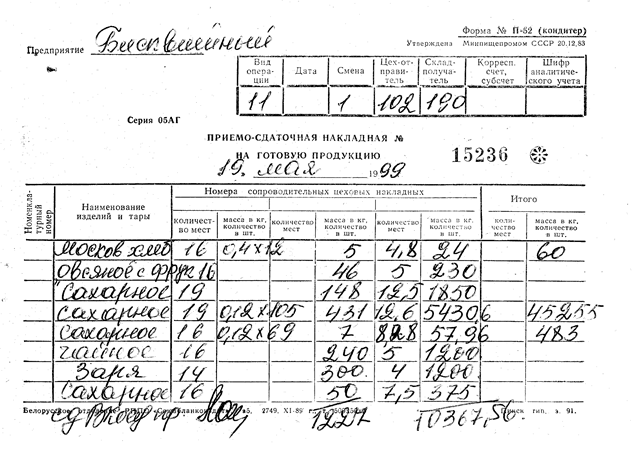 Форма № П-52 (кондитер)
Утверждена Минпищепромом СССР 20.12.83
Предприятие Бисквитный
Вид операции Дата Смена Цех-отправитель Склад-получатель Корресп. счет, субсчет Шифр аналитического учета
11 1 102 190
Серия 05АГ
ПРИЕМО-СДАТОЧНАЯ НАКЛАДНАЯ № 15236
НА ГОТОВУЮ ПРОДУКЦИЮ
19. мая 1999
Номенклатурный номер Наименование изделий и тары Номера сопроводительных цеховых накладных Итого
количество мест масса в кг, количество в шт. количество мест масса в кг, количество в шт. количество мест масса в кг, количество в шт. количество мест масса в кг, количество в шт.
Москов хлеб 16 0,4 x 12 5 4,8 24 60
Овсяное с фрук 16 46 5 230
Сахарное 19 148 12,5 1850
Сахарное 19 0,12 x 105 431 12,6 54306 45255
Сахарное 16 0,12 x 69 7 8,28 57,96 483
чайное 16 240 5 1200
Заря 14 300. 4 1200.
Сахарное 16 50 7,5 375
Белорусское 2749, XI-89 тип. з. 91.
1227 10367,56